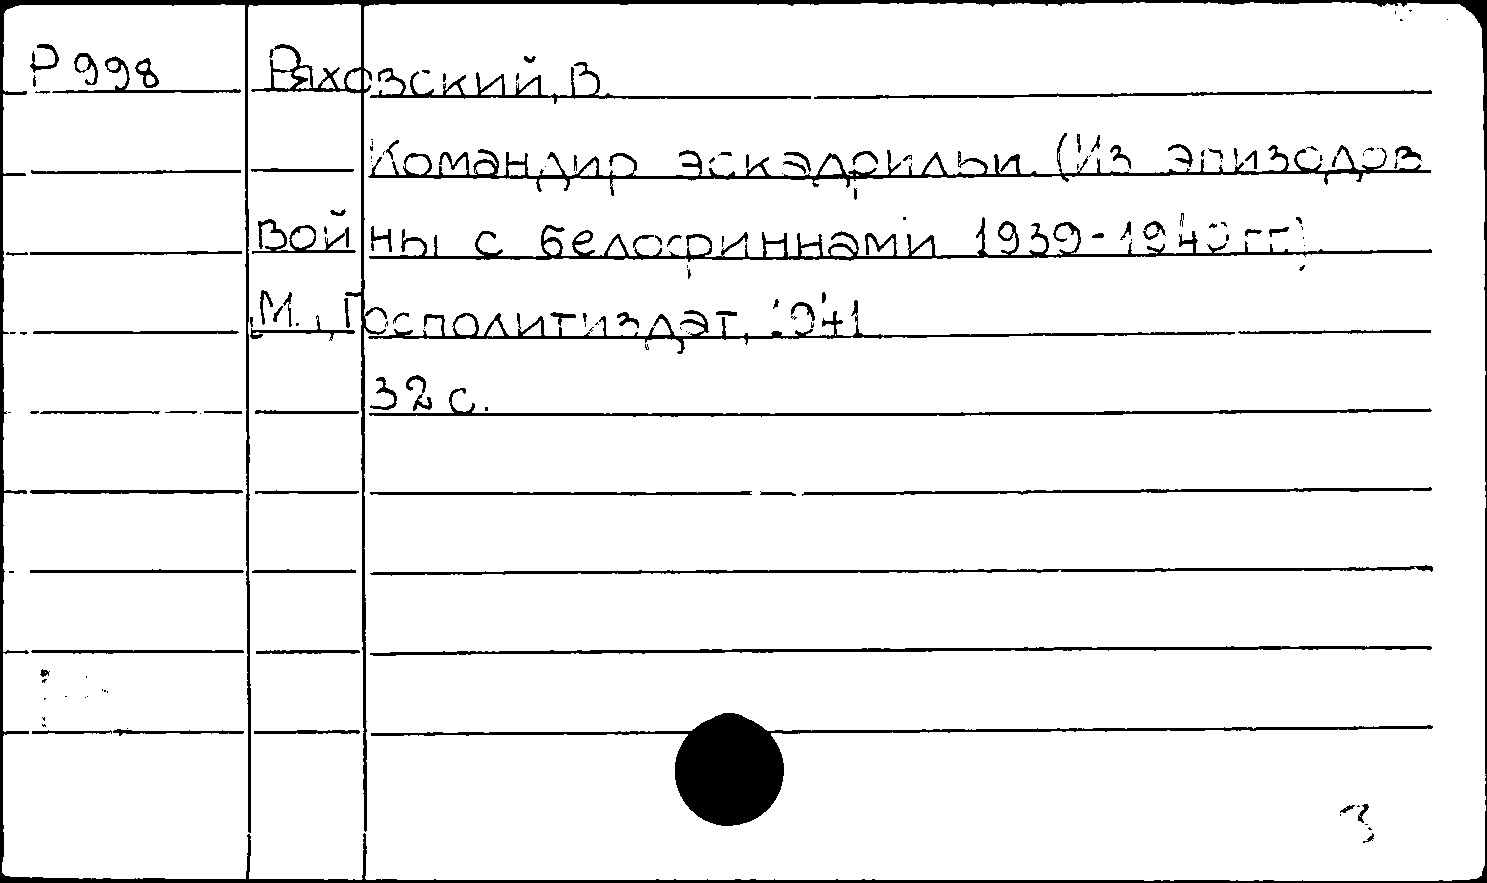 Р998 Ряховский, В.
Командир эскадрильи. (Из эпизодов
войны с белофиннами 1939-1940 гг.)
М., Госполитиздат, 1941
32 с.
3